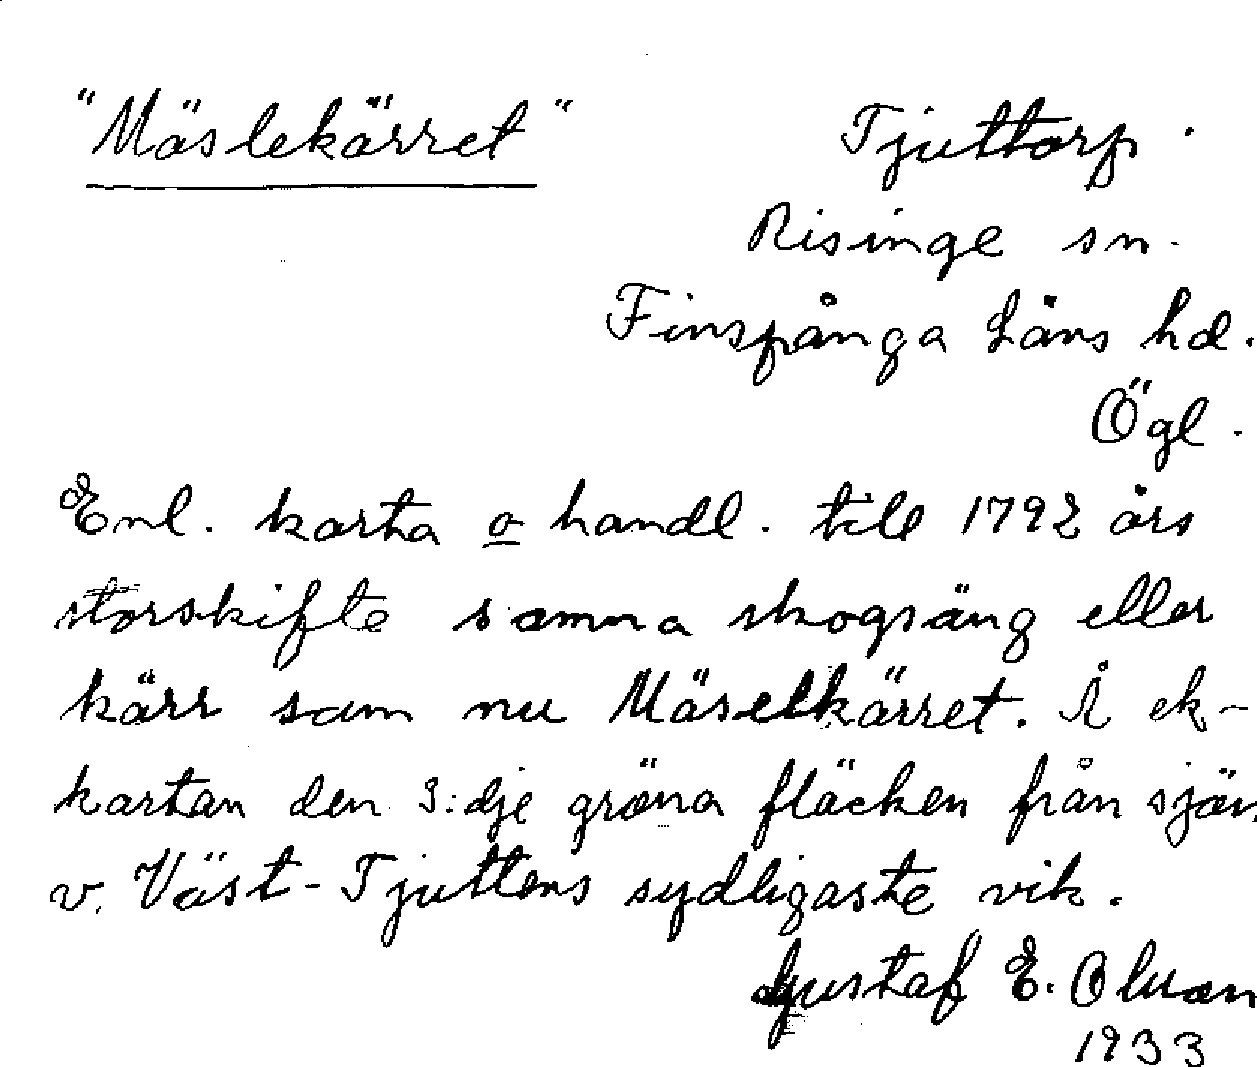 "Mäslekärret" Tjuttorp.
Risinge sn.
Finspånga Läns hd.
Ögl.
Enl. karta o handl. till 1792 års
storskifte samma skogsäng eller
kärr som nu Mäselkärret. Å ek-
kartan den 3:dje gröna fläcken från sjön
v. Väst-Tjuttens sydligaste vik.
Gustaf E. Olsson
1933